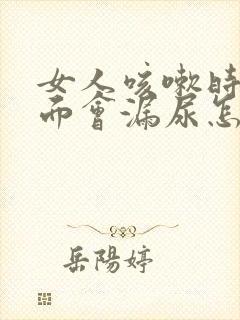 女人咳嗽時
而會漏尿怎
岳陽婷